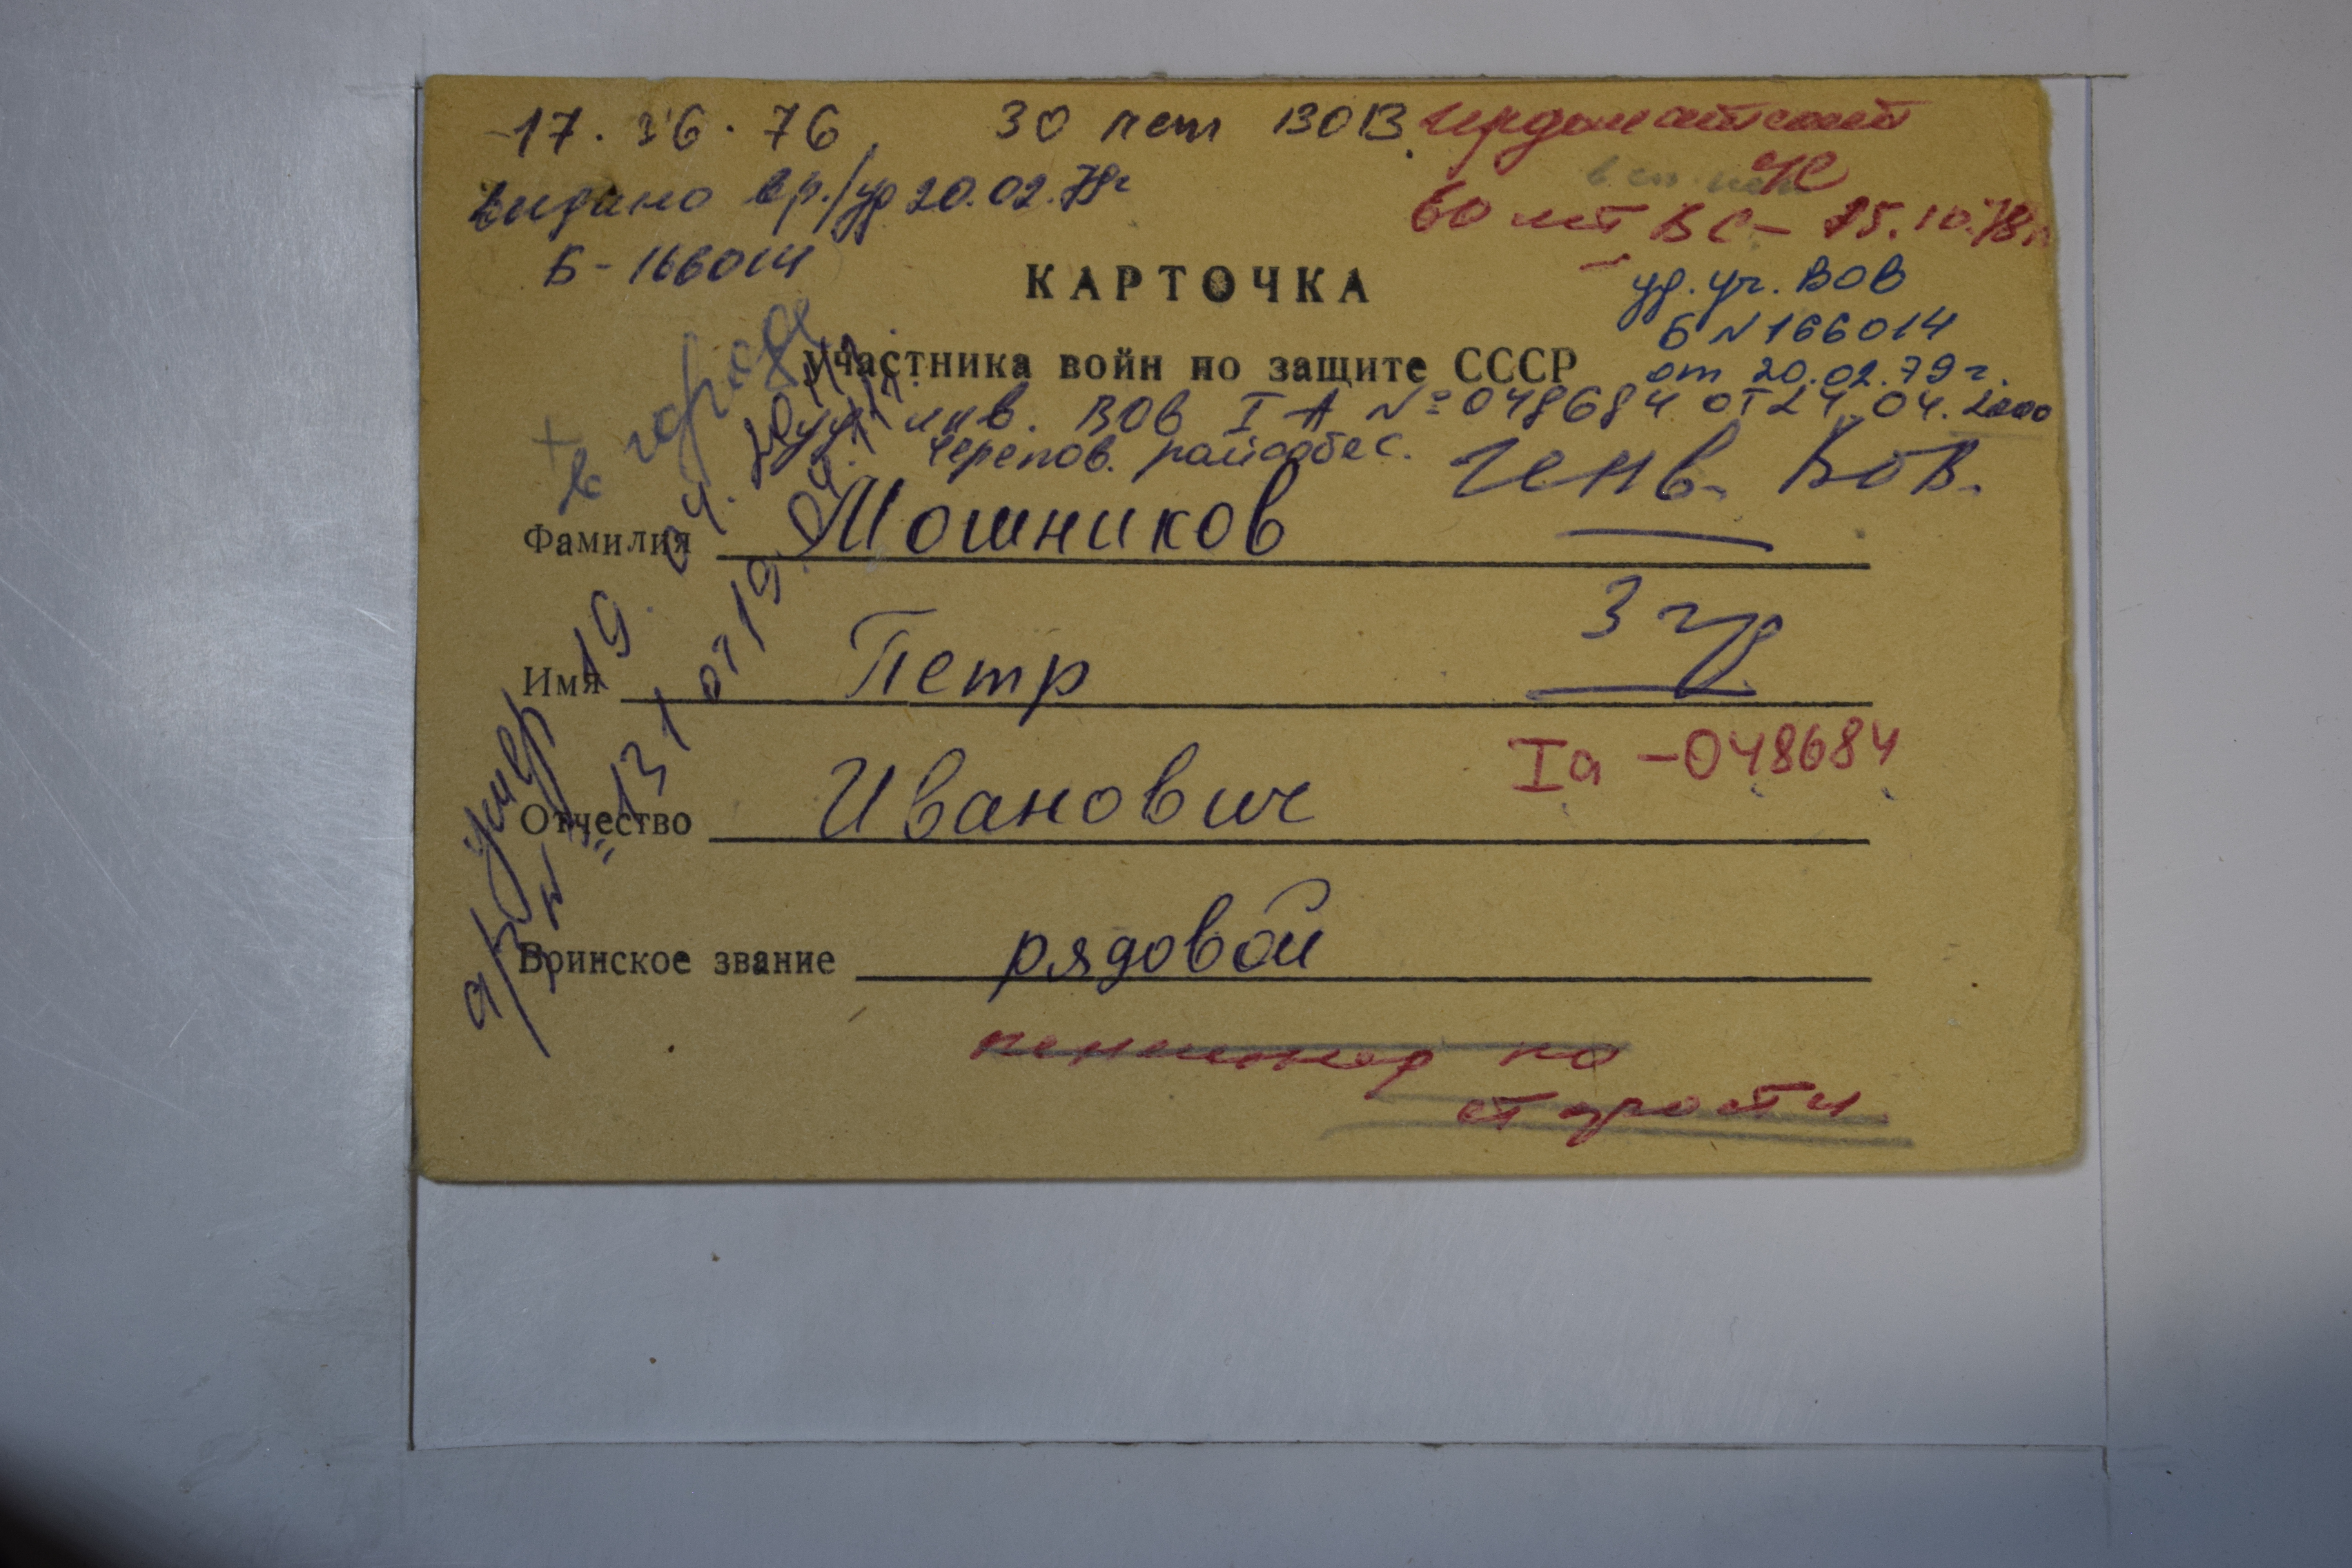 17. 06. 76 30 лет ВОВ. Ирдоматский
выдано вр./уд 20.02.79г
60 лет ВС - 25.10.78г
Б - 166014
КАРТОЧКА
уд. уч. ВОВ
Б N 166014
от 20.02.79 г.
участника войн по защите СССР
уд. инв. ВОВ I А № 048684 от 24.04.2000
Черепов. райсобес.
Инв. ВОВ.
+ в городе
Фамилия Мошников
3 гр
Имя Петр
Iа - 048684
Отчество Иванович
Воинское звание рядовой
пенсионер по
старости
умер 19. 04. 2011.
а/з № 131 от 19.04.11.